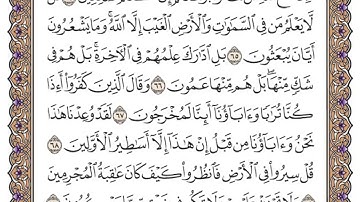 لَّا يَعْلَمُ مَن فِي ٱلسَّمَٰوَٰتِ وَٱلْأَرْضِ ٱلْغَيْبَ إِلَّا ٱللَّهُ ۚ وَمَا يَشْعُرُونَ
أَيَّانَ يُبْعَثُونَ ٦٥ بَلِ ٱدَّٰرَكَ عِلْمُهُمْ فِي ٱلْءَاخِرَةِ ۚ بَلْ هُمْ فِي
شَكٍّ مِّنْهَا ۖ بَلْ هُم مِّنْهَا عَمُونَ ٦٦ وَقَالَ ٱلَّذِينَ كَفَرُوٓا۟ أَءِذَا
كُنَّا تُرَٰبًا وَءَابَآؤُنَآ أَئِنَّا لَمُخْرَجُونَ ٦٧ لَقَدْ وُعِدْنَا هَٰذَا
نَحْنُ وَءَابَآؤُنَا مِن قَبْلُ إِنْ هَٰذَآ إِلَّآ أَسَٰطِيرُ ٱلْأَوَّلِينَ ٦٨
قُلْ سِيرُوا۟ فِي ٱلْأَرْضِ فَٱنظُرُوا۟ كَيْفَ كَانَ عَٰقِبَةُ ٱلْمُجْرِمِينَ